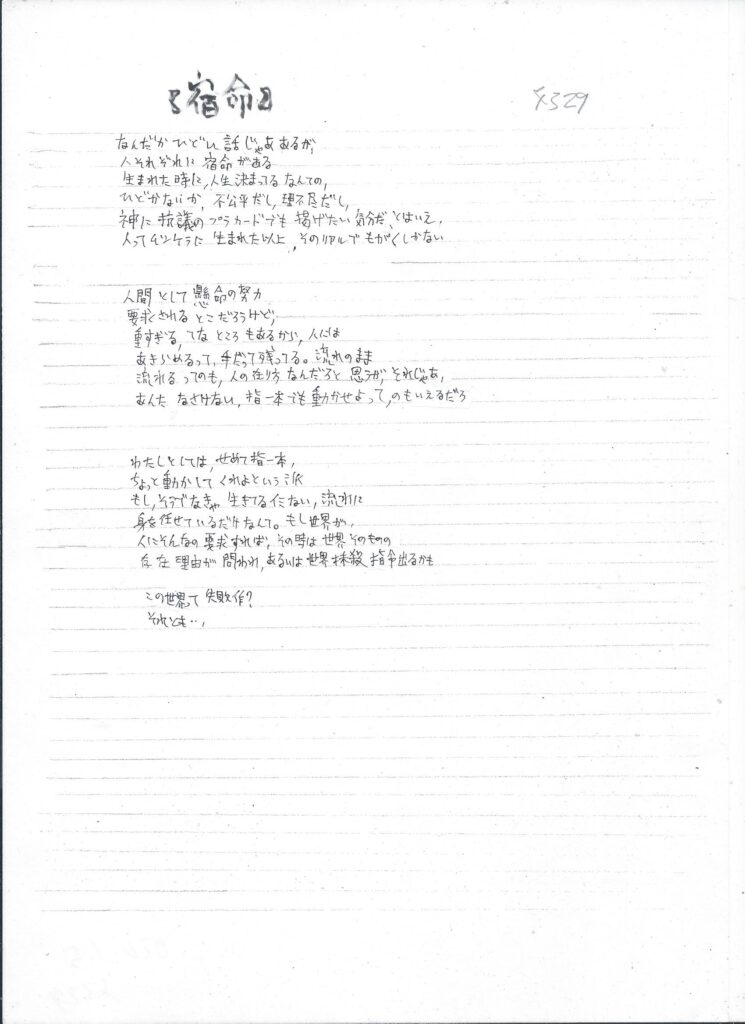 『宿命』
4329
なんだか ひどい 話じゃあ あるが、
人それぞれに 宿命がある
生まれた時に、人生決まってる なんての、
ひどかないか、不公平だし、理不尽だし、
神に 抗議の プラカードでも 掲げたい 気分だ、とはいえ、
人って 生まれた以上、そのリアルで もがくしかない
人間として 懸命の努力
要求される とこ だろうけど、
重すぎる、てな ところ もあるから、人には
あきらめるって、手だって残ってる。流れのまま
流れる ってのも、人の在り方 なんだろと 思うが、それじゃあ、
あんた なさけない、指一本でも 動かせよって、のも いえるだろ
わたしとしては、せめて指一本、
ちょっと動かして くれよという 派
もし、そうでなきゃ 生きてる ない、流れに
身を任せているだけなんて。もし世界が、
人にそんなの 要求すれば、その時は 世界 そのものの
存在 理由が 問われ、あるいは 世界 抹殺 指令出るかも
この世界って 失敗作?
それとも‥、